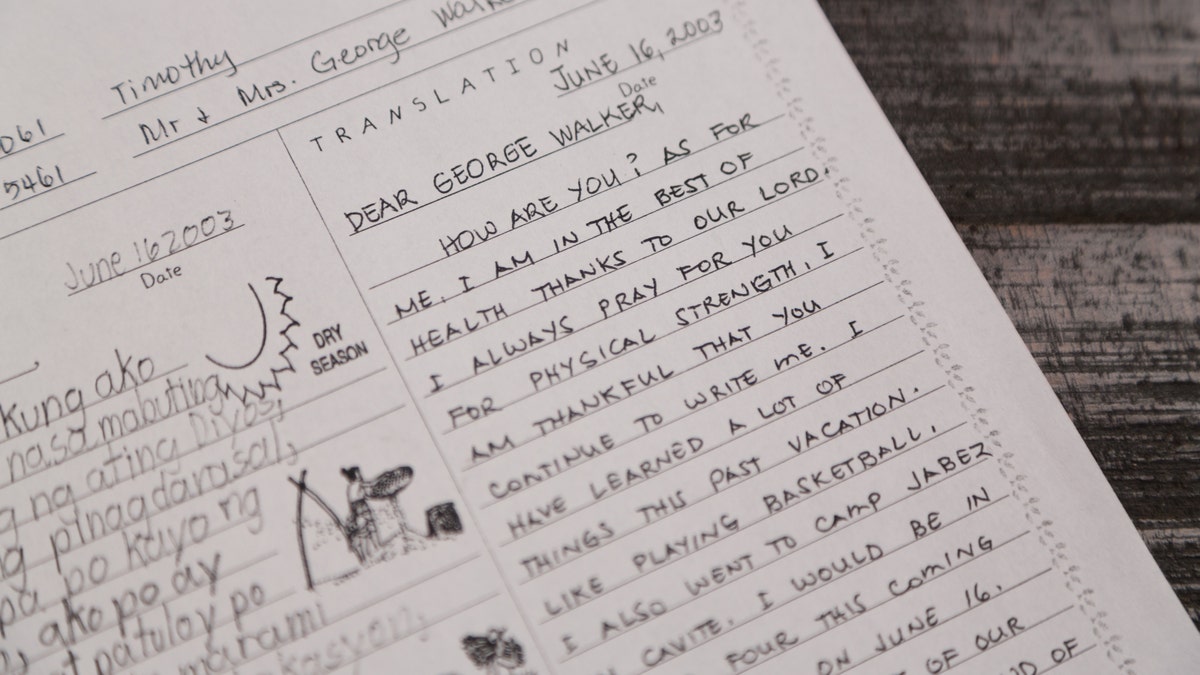 Timothy
Mr & Mrs. George
061
5461
TRANSLATION
JUNE 16, 2003
Date
DEAR GEORGE WALKER,
HOW ARE YOU? AS FOR
ME, I AM IN THE BEST OF
HEALTH THANKS TO OUR LORD.
I ALWAYS PRAY FOR YOU
FOR PHYSICAL STRENGTH, I
AM THANKFUL THAT YOU
CONTINUE TO WRITE me. I
HAVE LEARNED A LOT OF
THINGS THIS PAST VACATION.
LIKE PLAYING BASKETBALL,
I ALSO WENT TO CAMP JABEZ
CAVITE. I WOULD BE IN
FOUR THIS COMING
ON JUNE 16.
OF OUR
OF
June 16 2003
Date
DRY
SEASON
kung ako
nasa mabuting
ng ating Diyos,
pinagdarasal,
pa po kayo ng
ako po ay
t patuloy po
marami